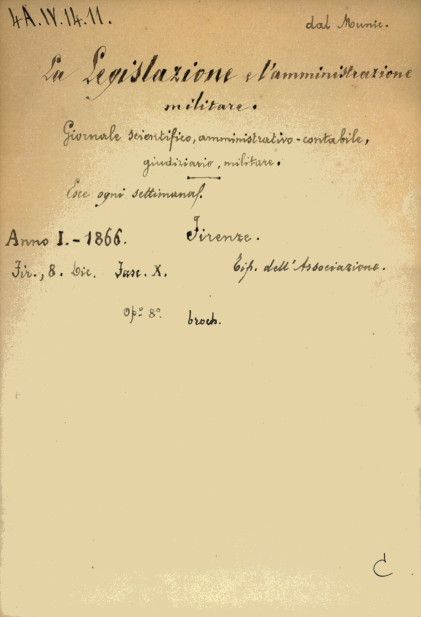 4A.IV.14.11.
dal Munic.
La Legislazione e l'amministrazione
militare.
Giornale scientifico, amministrativo-contabile,
giudiziario, militare.
Esce ogni settimana.
Anno I. - 1866. Firenze.
Fir., 8. Dic. Fasc. X. Tip. dell'Associazione.
Op.º 8º. broch.
C